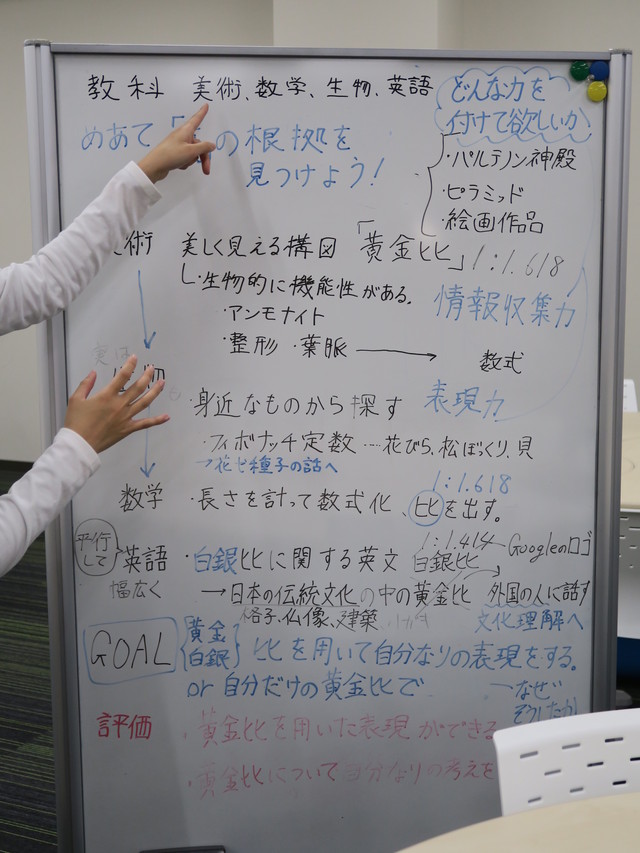 教科 美術、数学、生物、英語
どんな力を
付けて欲しいか
めあて「
の根拠を
見つけよう!
・パルテノン神殿
・ピラミッド
・絵画作品
術 美しく見える構図 「黄金比」1:1.618
・生物的に機能性がある。
・アンモナイト
・整形 ・葉脈 → 数式
情報収集力
表現力
物
・身近なものから探す
・フィボナッチ定数…花びら、松ぼっくり、貝
→花と種子の話へ
1:1.618
数学 ・長さを計って数式化、比を出す。
平行して
英語 ・白銀比に関する英文 白銀比
1:1.414 Googleのロゴ
幅広く
→日本の伝統文化の中の黄金比 外国の人に話す
格子、仏像、建築
文化理解へ
GOAL
黄金
白銀
比を用いて自分なりの表現をする。
or 自分だけの黄金比で
なぜ
そうしたか
評価 ・黄金比を用いた表現ができる
・黄金比について自分なりの考えを